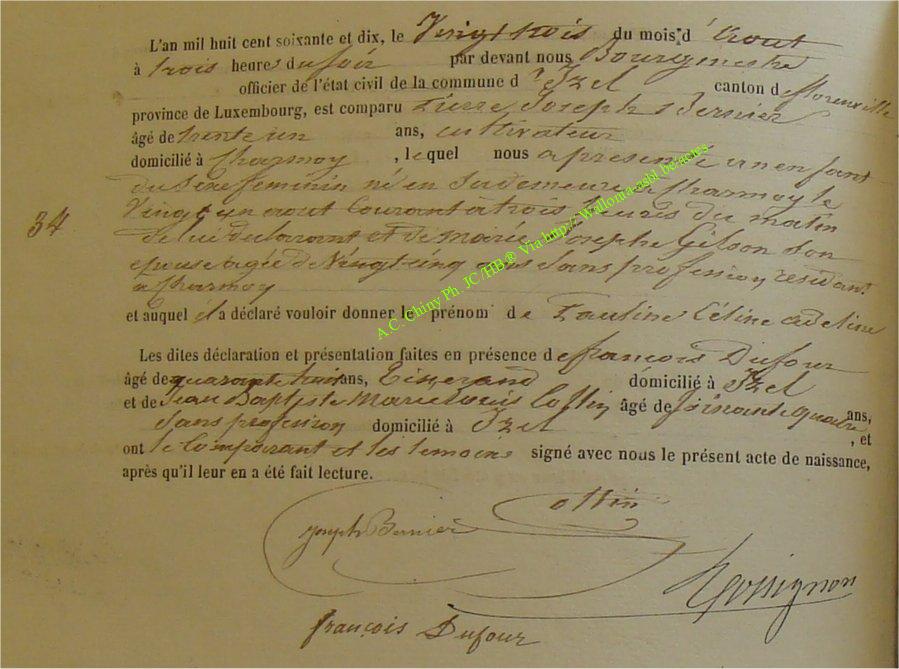 L'an mil huit cent soixante et dix, le Vingt trois du mois d' aout
à trois heures du soir par devant nous Bourgmestre
officier de l'état civil de la commune d' Izel canton de florenville
province de Luxembourg, est comparu Pierre Joseph Bernier
âgé de trente un ans, cultivateur
domicilié à Charmoy, lequel nous a presenté un enfant
du sexe feminin né en sa demeure a Charmoy le
34
Vingt un aout Courant à trois heures du matin
de lui declarant et de Marie Josephe Gilson son
epouse agée de Vingt cinq ans sans profession residant
a Charmoy
et auquel il a déclaré vouloir donner le prénom de Pauline Céline adeline
Les dites déclaration et présentation faites en présence de françois Dufour
âgé de quarante trois ans, Tisserand domicilié à Izel
et de Jean Baptiste Marie Louis Cottin âgé de soixante quatre ans,
sans profession domicilié à Izel, et
ont le Comparant et les temoins signé avec nous le présent acte de naissance,
après qu'il leur en a été fait lecture.
Cottin
Joseph Bernier
Rossignon
françois Dufour
A.C. Chiny Ph JC/HB® Via http://Wallonia-asbl.be.actes